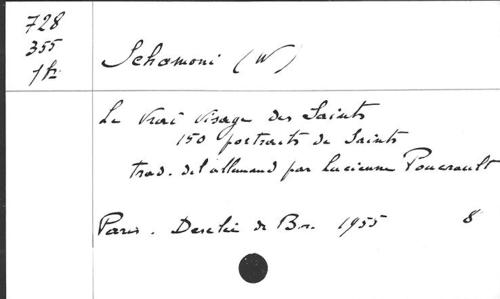 728
355
Schamoni (W)
Le Vrai Visage des Saints
150 portraits de Saints
trad. de l'allemand par Lucienne Foucrault
Paris. Desclée de Br. 1955 8